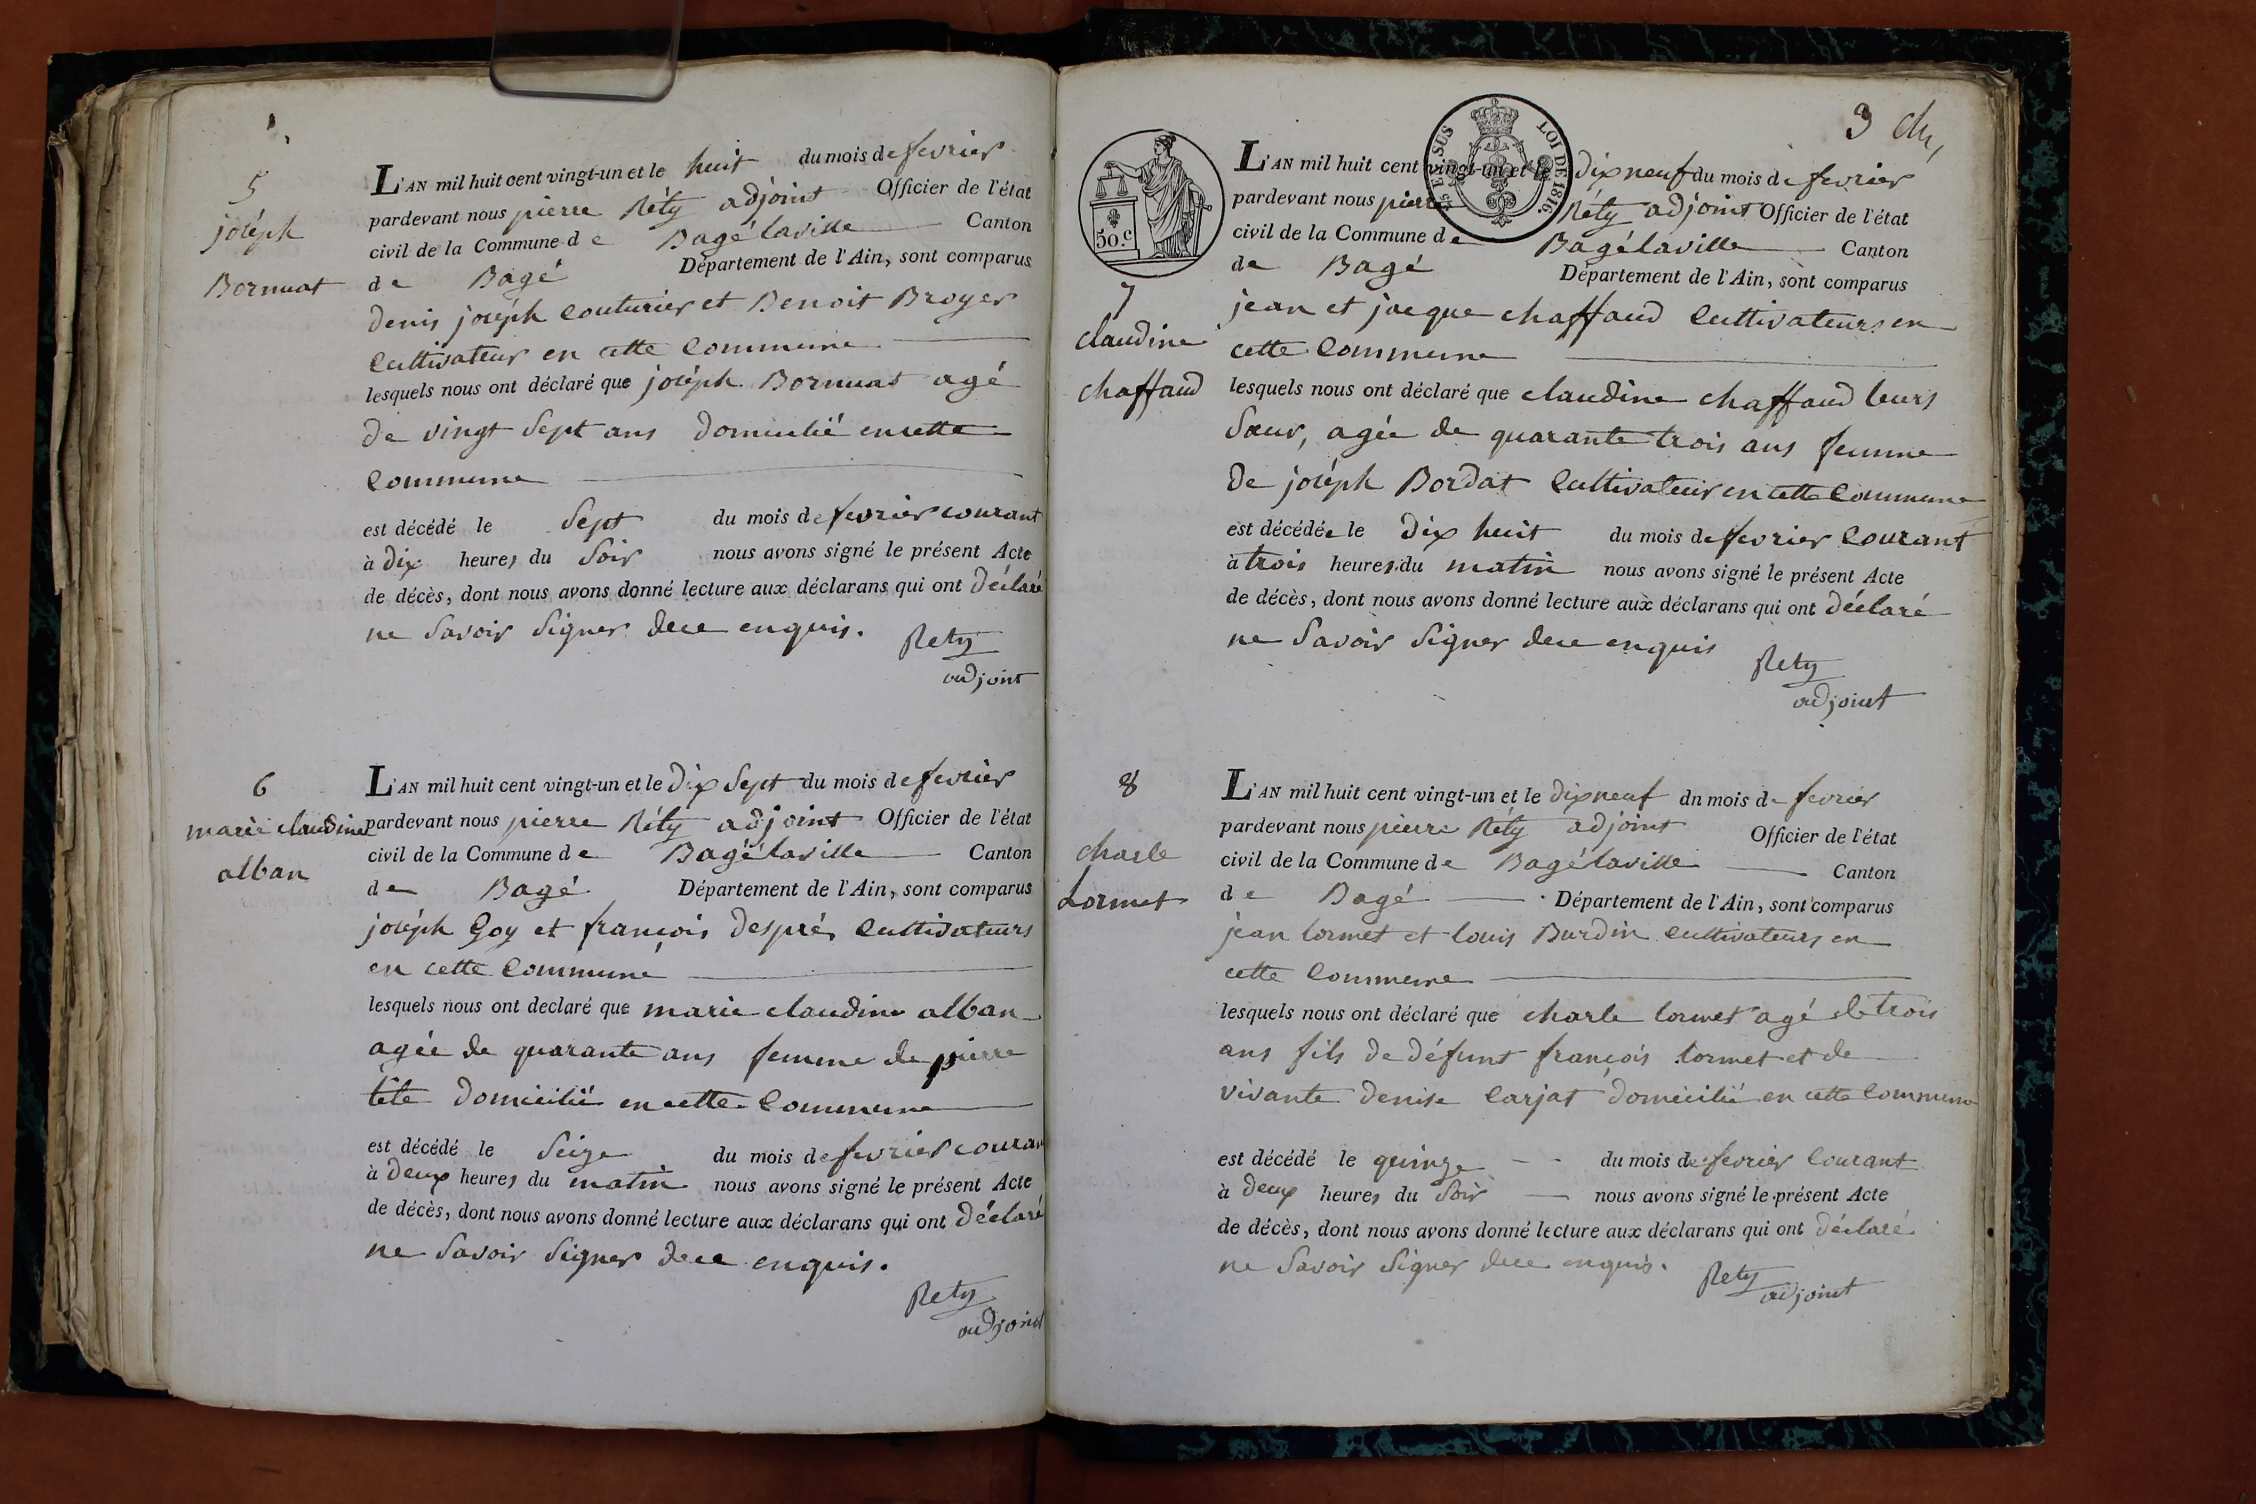 5
joséph
Bornuat
L'AN mil huit cent vingt-un et le huit du mois de fevrier
pardevant nous pierre Réty adjoint Officier de l'état
civil de la Commune de Bagélaville Canton
de Bagé Département de l'Ain, sont comparus
denis joséph couturier et Benoit Broyer
Cultivateur en cette Commune
lesquels nous ont déclaré que joséph Bornuat agé
de vingt Sept ans domicilié en cette
Commune
est décédé le Sept du mois de fevrier courant
à dix heures du Soir nous avons signé le présent Acte
de décès, dont nous avons donné lecture aux déclarans qui ont déclaré
ne Savoir Signer de ce enquis.
Rety
adjoint
6
marie claudine
alban
L'AN mil huit cent vingt-un et le dix Sept du mois de fevrier
pardevant nous pierre Réty adjoint Officier de l'état
civil de la Commune de Bagélaville Canton
de Bagé Département de l'Ain, sont comparus
joséph Goy et françois després Cultivateurs
en cette Commune
lesquels nous ont declaré que marie claudine alban
agée de quarante ans femme de pierre
téte domicilié en cette Commune
est décédé le Seize du mois de fevrier couran
à deux heures du matin nous avons signé le présent Acte
de décès, dont nous avons donné lecture aux déclarans qui ont déclaré
ne Savoir Signer de ce enquis.
Rety
adjoint
3
50.c
SUS
LOI DE 1816.
7
claudine
chaffaud
L'AN mil huit cent vingt-un et le dix neuf du mois de fevrier
pardevant nous pierre Réty adjoint Officier de l'état
civil de la Commune de Bagélaville Canton
de Bagé Département de l'Ain, sont comparus
jean et jacque chaffaud Cultivateurs en
cette Commune
lesquels nous ont déclaré que claudine chaffaud leurs
Sœur, agée de quarante trois ans femme
de joséph Bordat Cultivateur en cette Commune
est décédée le dix huit du mois de fevrier Courant
à trois heures du matin nous avons signé le présent Acte
de décès, dont nous avons donné lecture aux déclarans qui ont déclaré
ne Savoir Signer de ce enquis
Rety
adjoint
8
charle
Lormet
L'AN mil huit cent vingt-un et le dix neuf du mois de fevrier
pardevant nous pierre Réty adjoint Officier de l'état
civil de la Commune de Bagélaville Canton
de Bagé Département de l'Ain, sont comparus
jean lormet et louis Burdin cultivateurs en
cette Commune
lesquels nous ont déclaré que charle lormet agé de trois
ans fils de défunt françois lormet et de
vivante denise Carjat domicilié en cette Commune
est décédé le quinze du mois de fevrier Courant
à deux heures du Soir nous avons signé le présent Acte
de décès, dont nous avons donné lecture aux déclarans qui ont déclaré
ne Savoir Signer de ce enquis.
Rety
adjoint